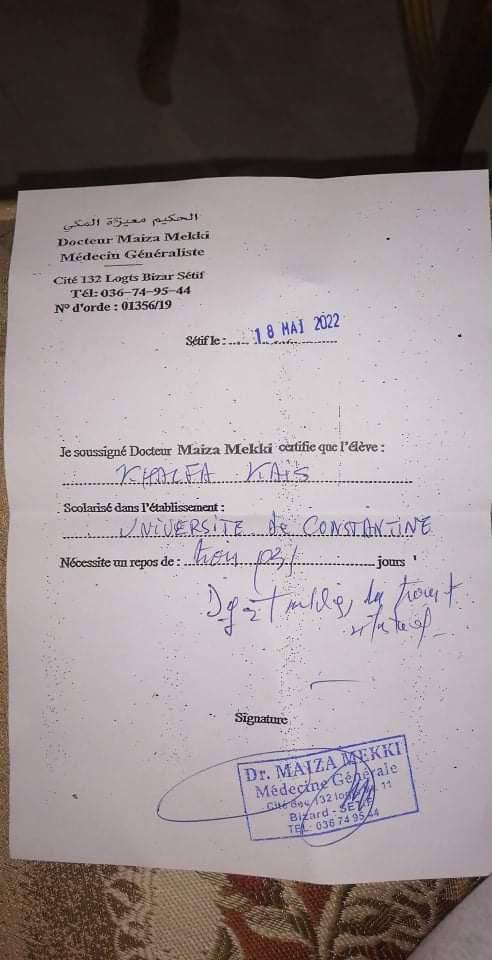 الحكيم معيزة المكي
Docteur Maiza Mekki
Médecin Généraliste
Cité 132 Logts Bizar Sétif
Tél: 036-74-95-44
N° d'ordre : 01356/19
Sétif le : 18 MAI 2022
Je soussigné Docteur Maiza Mekki certifie que l'élève :
KHALFA KAIS
Scolarisé dans l'établissement :
UNIVERSITE de CONSTANTINE
Nécessite un repos de : jours
Signature
Dr. MAIZA MEKKI
Médecine Générale
Cité des 132 11
Bizard - SETIF
TEL: 036 74 95 44